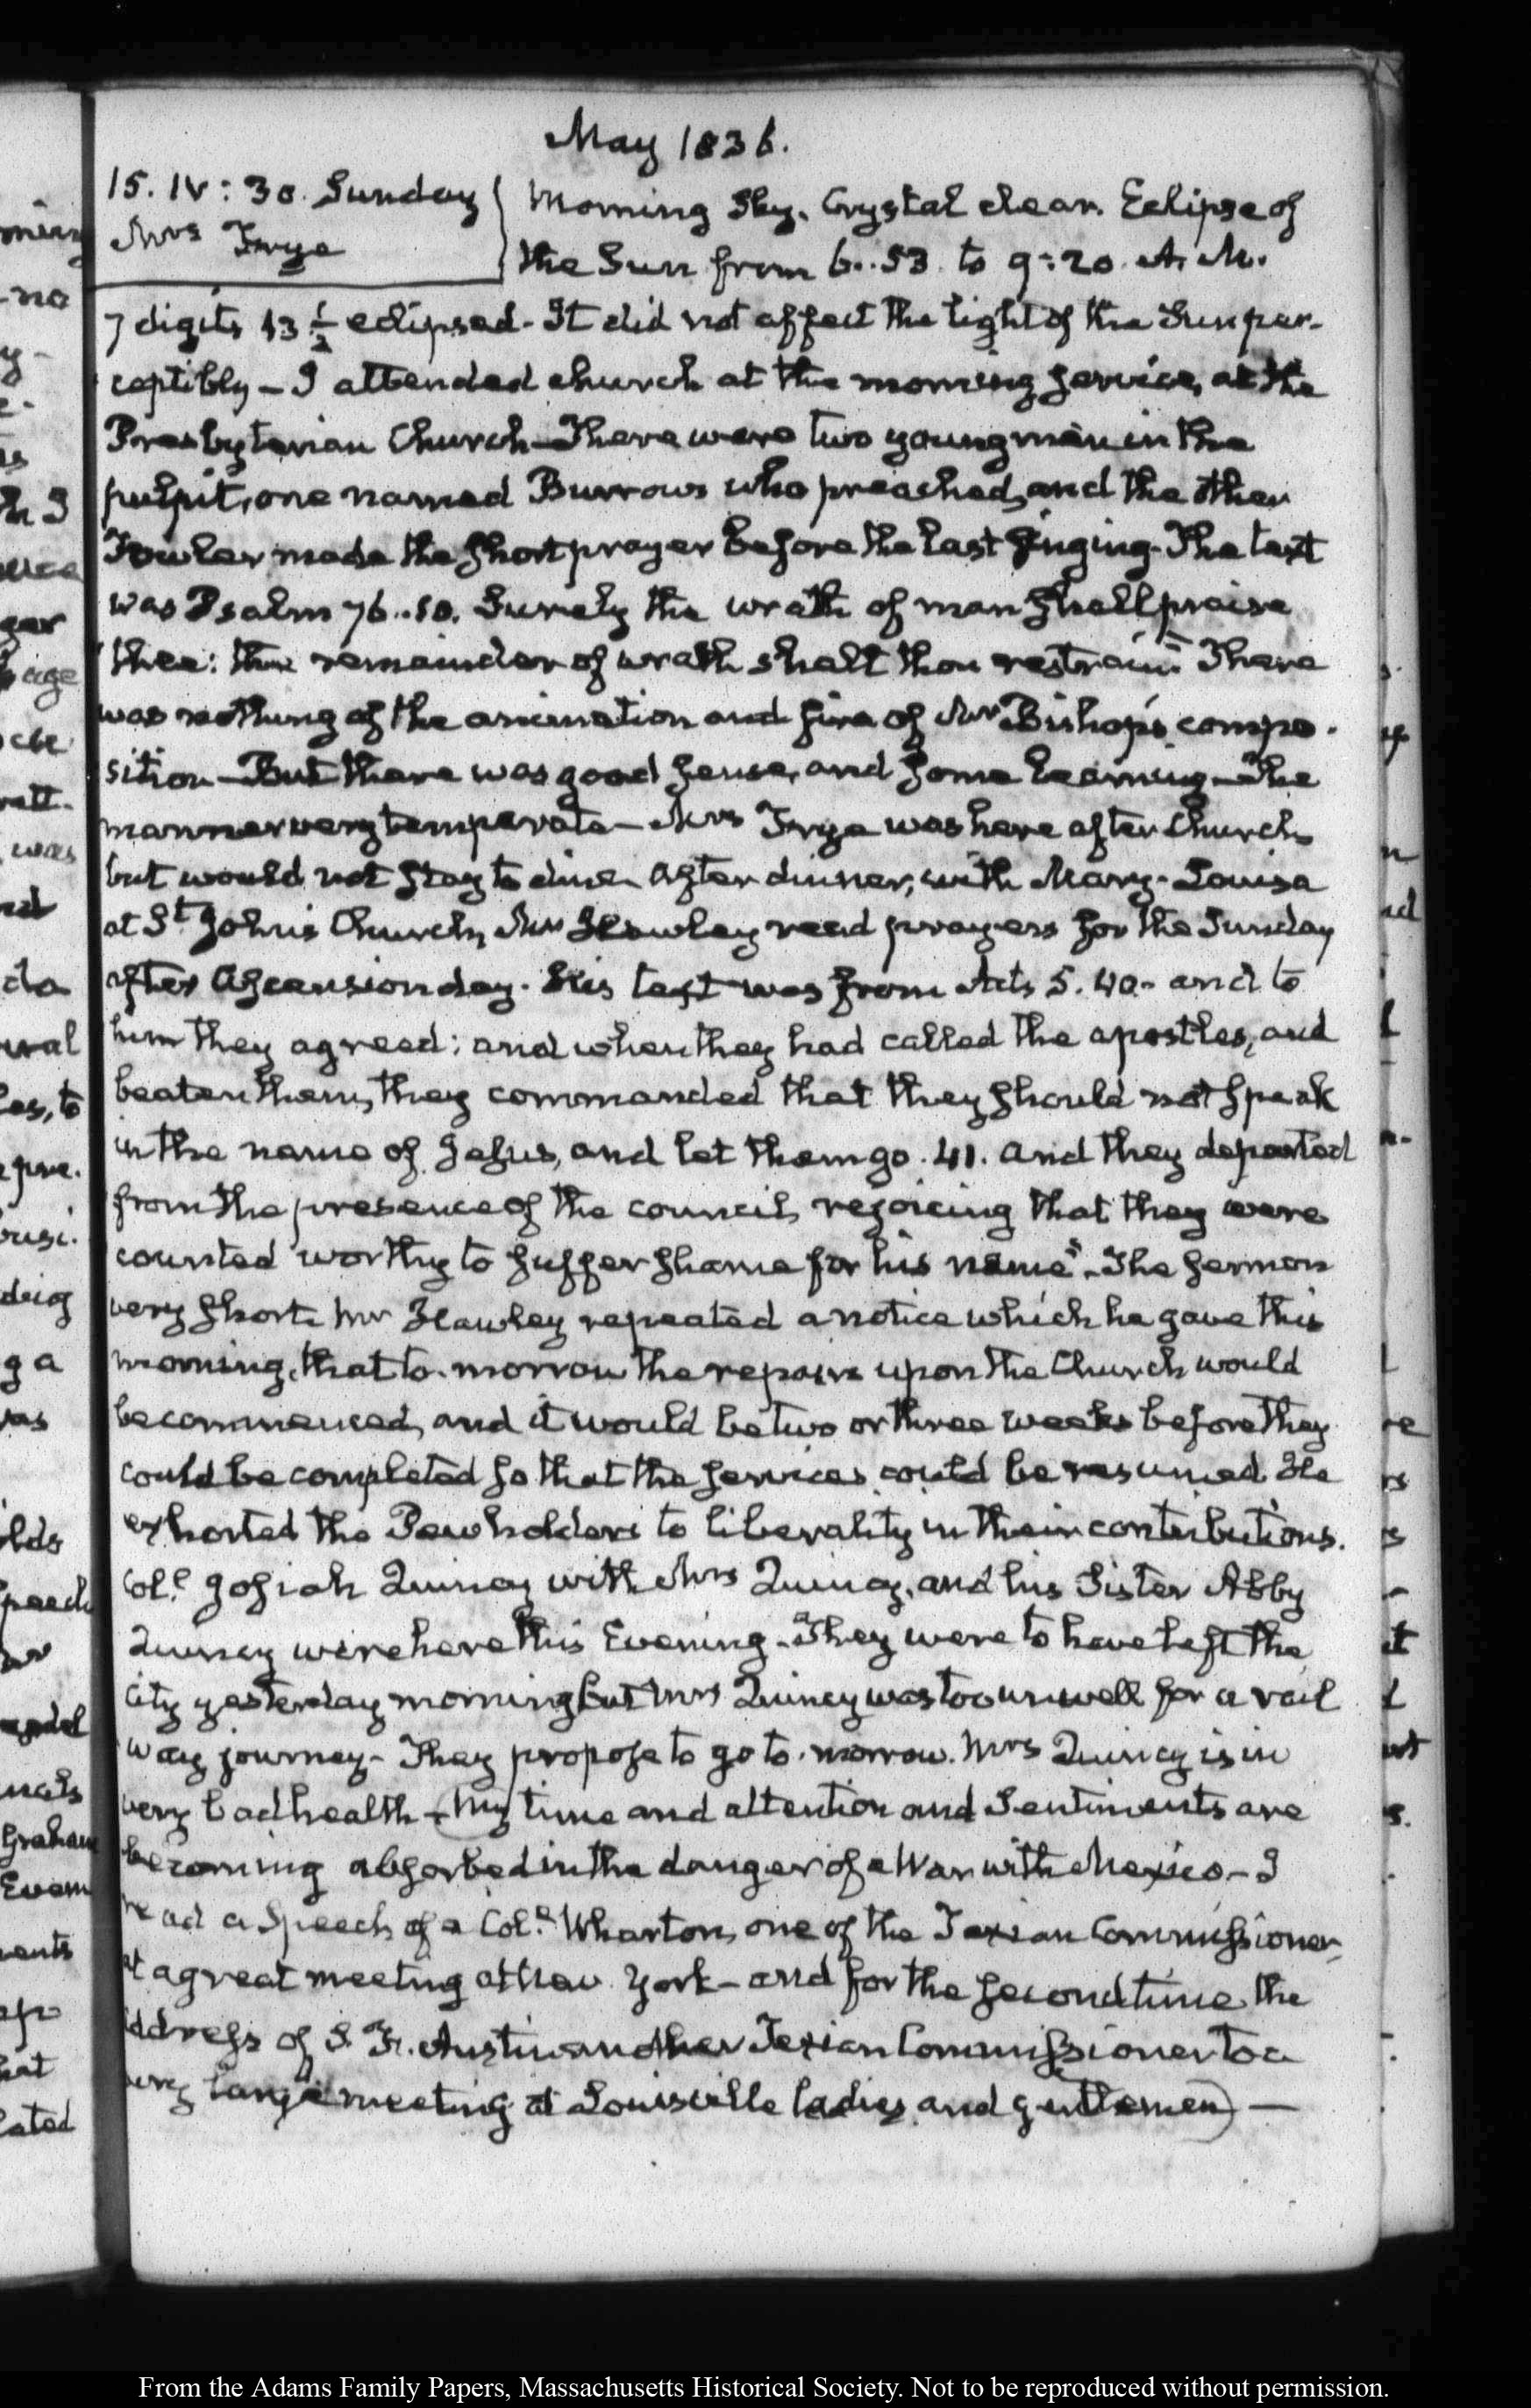 May 1836.
15. IV: 30. Sunday
Mrs Frye
Morning Sky. Crystal clear. Eclipse of
the Sun from 6..53. to 9:20. A. M.
7 digits 43 1/2 eclipsed - It did not affect the light of the Sun per-
ceptibly - I attended church at the morning service, at the
Presbyterian Church - There were two young men in the
pulpit, one named Burrows who preached, and the other
Fowler made the short prayer before the last singing - The text
was Psalm 76..10. Surely the wrath of man shall praise
thee: the remainder of wrath shalt thou restrain" There
was nothing of the animation and fire of Mr Bishop's compo-
sition - But there was good sense, and some learning - The
manner very temperate - Mrs Frye was here after Church,
but would not stay to dine. After dinner, with Mary-Louisa
at St. John's Church, Mr Hawley read prayers for the Sunday
after Ascension day. His text was from Acts 5. 40. and to
him they agreed: and when they had called the apostles, and
beaten them, they commanded that they should not speak
in the name of Jesus, and let them go. 41. And they departed
from the presence of the council, rejoicing that they were
counted worthy to suffer shame for his name" - The sermon
very short. Mr Hawley repeated a notice which he gave this
morning, that to-morrow the repairs upon the Church would
be commenced, and it would be two or three weeks before they
could be completed so that the services could be resumed. He
exhorted the Pewholders to liberality in their contributions.
Col.l Josiah Quincy with Mrs Quincy, and his Sister Abby
Quincy were here this Evening - They were to have left the
City yesterday morning but Mrs Quincy was too unwell for a rail
way journey - They propose to go to-morrow. Mrs Quincy is in
very bad health - (My time and attention and Sentiments are
becoming absorbed in the danger of a War with Mexico - I
read a Speech of a Col.l Wharton, one of the Texian Commissioners,
at a great meeting at New York - and for the second time, the
address of S. F. Austin another Texian Commissioner to a
very large meeting at Louisville ladies and gentlemen) -
From the Adams Family Papers, Massachusetts Historical Society. Not to be reproduced without permission.